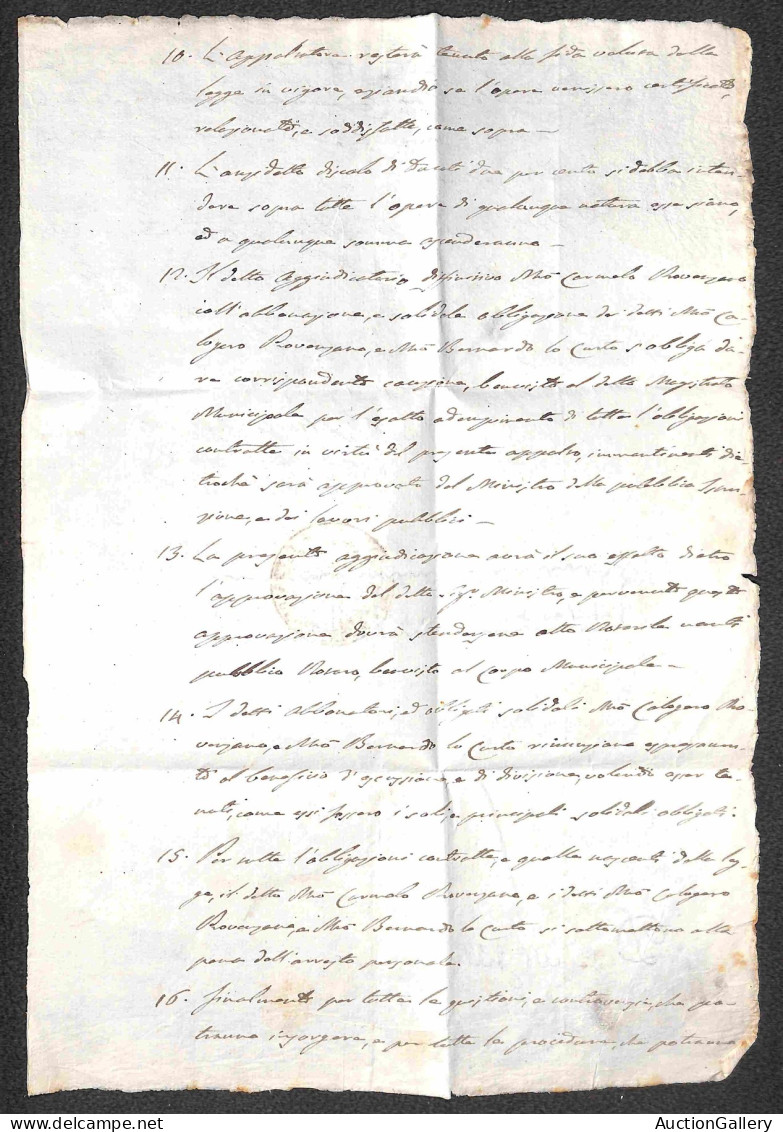 10. L'appaltatore resterà tenuto alla fida voluta dalla
legge in vigore, eziandio se l'opere venissero certificate,
relazionate, e soddisfatte, come sopra —
11. L'anzidetto discalo di Ducati due per cento si debba inten-
dere sopra tutte l'opere di qualunque natura esse siano,
ed a qualunque somma ascenderanno —
12. Il detto aggiudicatario diffinitivo Mro Carmelo Rovenzano
coll'abbonazione, e solidale obligazione dei detti Mro Ca-
logero Rovenzano, e Mro Bernardo lo Curto s'obliga da-
re corrispondente cauzione, benevista al detto Magistrato
Municipale per l'esatto adempimento di tutte l'obligazioni
contratte in virtù del presente appalto, immantinenti die-
trochè sarà approvato dal Ministro della pubblica Istru-
zione, e dei lavori pubblici —
13. La presente aggiudicazione avrà il suo effetto dietro
l'approvazione del detto Sr. Ministro, e pervenuta questa
approvazione dovrà stendersene atto Notarile nanti
pubblico Notaro, benevisto al Corpo Municipale —
14. I detti abbonatori, ed obligati solidali Mro Calogero Ro-
venzano, e Mro Bernardo lo Curto rinunziano espressamen-
te al beneficio d'escussione, e di divisione, volendo esser te-
nuti, come essi fossero i soli, e principali solidali obligati.
15. Per tutte l'obligazioni contratte, e quelle nascenti dalla leg-
ge, il detto Mro Carmelo Rovenzano, e i detti Mro Calogero
Rovenzano, e Mro Bernardo lo Curto si sottomettono alla
pena dell'arresto personale.
16. Finalmente per tutte le quistioni, e controversie, che po-
tranno insorgere, e per tutta la procedura, che potranno
AuctionGallery.com